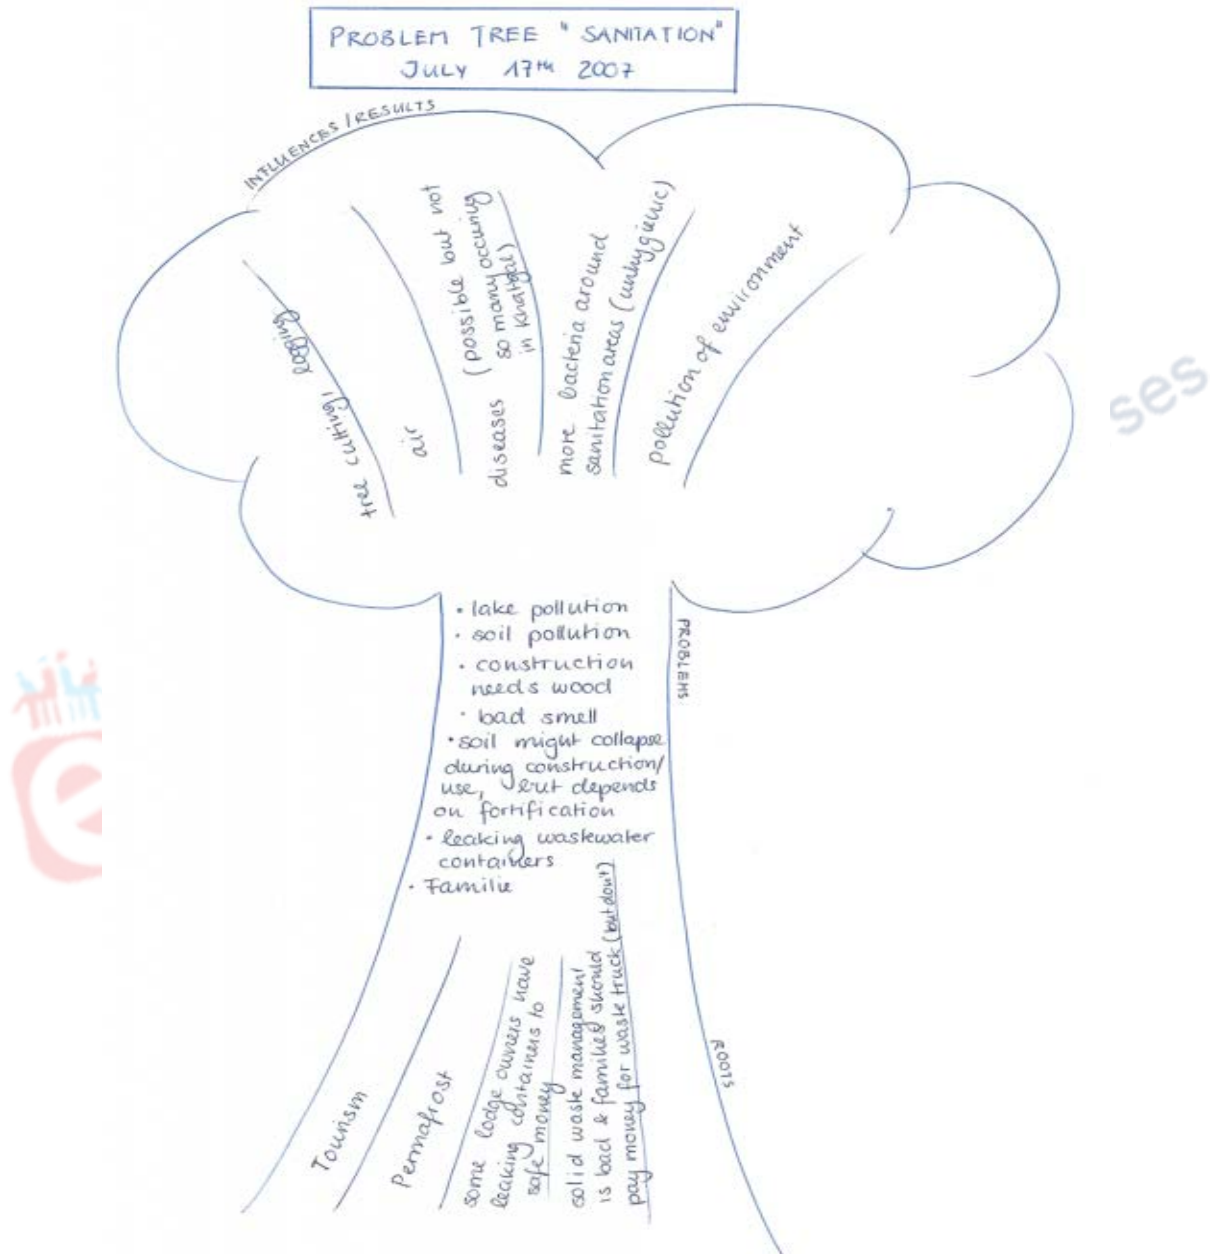 PROBLEM TREE "SANITATION"
JULY 17th 2007
INFLUENCES / RESULTS
tree cutting, logging
air
diseases (possible but not
so many occuring
in Khatgal)
more bacteria around
sanitation areas (unhygienic)
pollution of environment
PROBLEMS
· lake pollution
· soil pollution
· construction
needs wood
· bad smell
· soil might collapse
during construction/
use, but depends
on fortification
· leaking wastewater
containers
· Familie
ROOTS
Tourism
Permafrost
some lodge owners have
leaking containers to
safe money
solid waste management
is bad & families should
pay money for waste truck (but don't)
ses
e